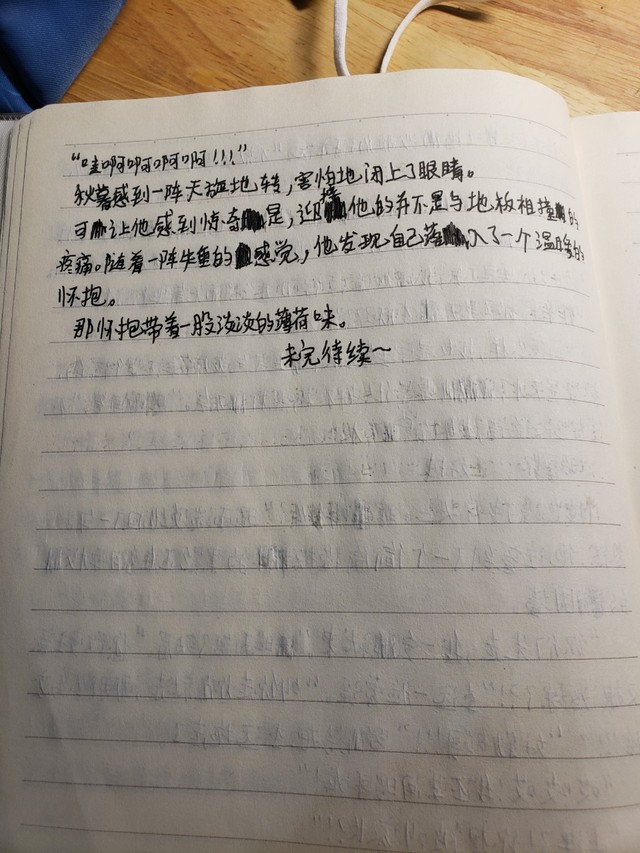 “哇啊啊啊啊!!!”
秋暮感到一阵天旋地转,害怕地闭上了眼睛。
可让他感到惊奇是,迎接他的并不是与地板相撞的
疼痛。随着一阵失重的感觉,他发现自己落入了一个温暖的
怀抱。
那怀抱带着一股淡淡的薄荷味。
未完待续~